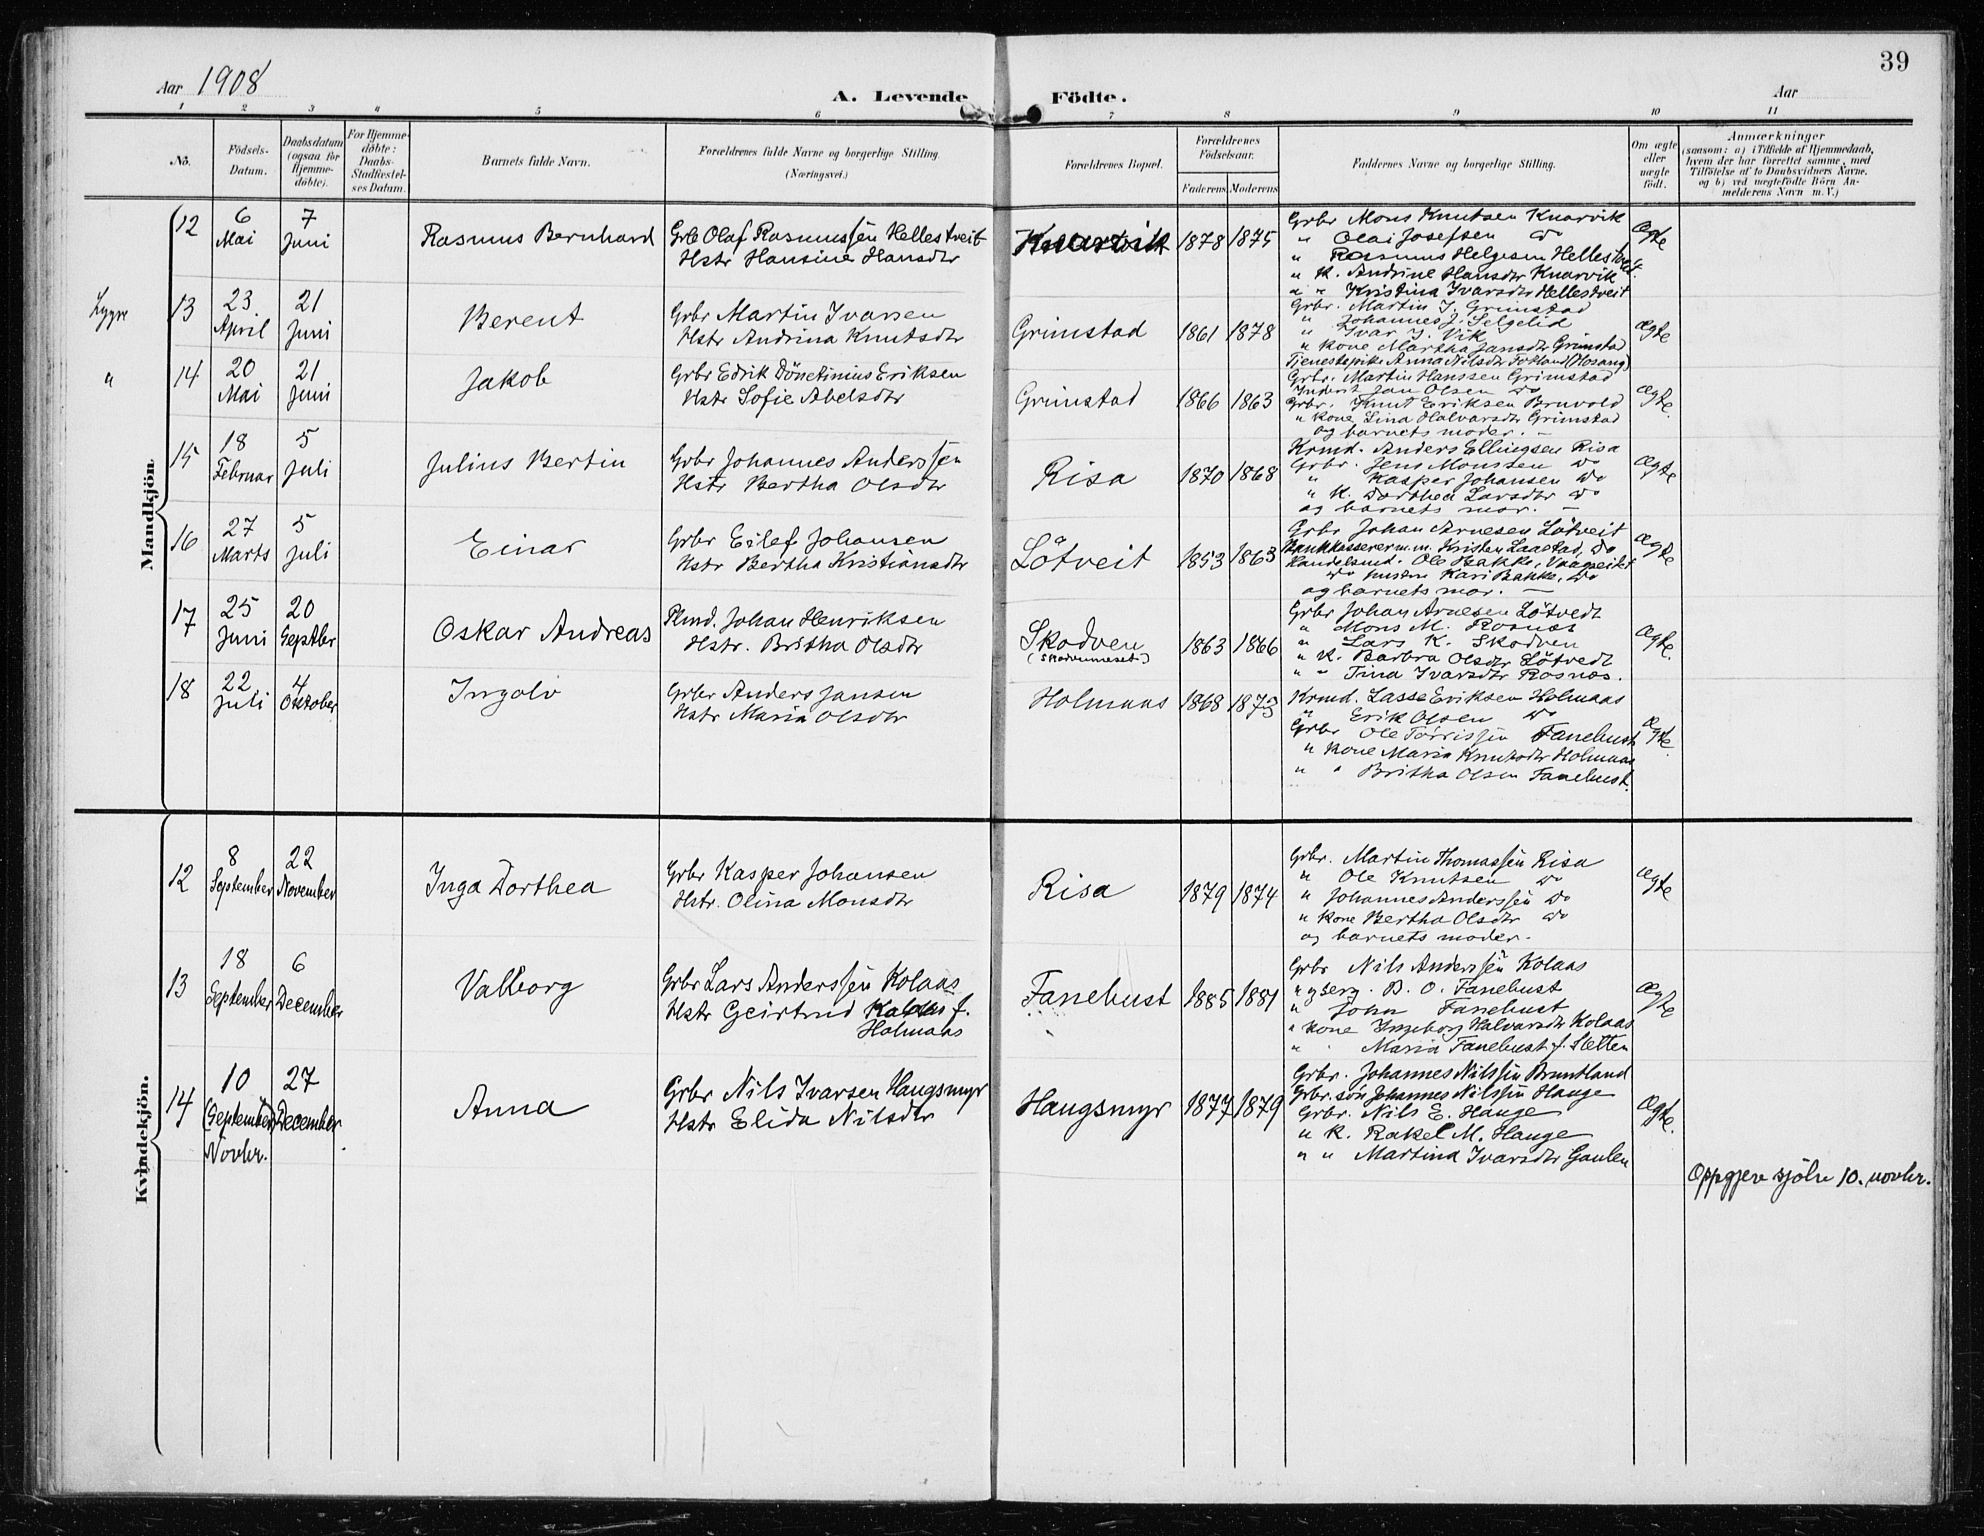 39
Aar 1908
A. Levende Födte.
Aar
1 2 3 4 5 6 7 8 9 10 11
No.
Födsels-Datum.
Daabsdatum (ogsaa for Hjemme-döbte).
For Hjemme-döbte: Daabs-Stadfæstel-ses Datum.
Barnets fulde Navn.
Forældrenes fulde Navne og borgerlige Stilling.
(Næringsvei.)
Forældrenes Bopæl.
Forældrenes Födselsaar.
Faderens Moderens
Faddernes Navne og borgerlige Stilling.
Om ægte eller uægte födt.
Anmærkninger
(saasom: a) i Tilfælde af Hjemmedaab,
hvem der har forrettet samme, med
Tilföielse af to Daabsvidners Navne.
og b) ved uægtefödte Börn An-
melderens Navn m. V.)
Mandkjön.
12 6 Mai 7 Juni Rasmus Bernhard
Grb Olaf Rasmussen Hellestveit
Hstr Hansine Hansdtr
Knarvik 1878 1875
Grbr Mons Knutsen Knarvik
" Olai Josefsen do
" Rasmus Helgesen Hellestveit.
" K. Andrine Hansdtr Knarvik
" " Kristina Ivarsdtr Hellestveit
Ægte
Lygre 13 23 April 21 Juni Berent
Grbr Martin Ivarsen
Hstr Andrina Knutsdtr
Grimstad 1861 1878
Grbr. Martin J. Grimstad
" Johannes J. Selgelid
" Ivar J. Vik
" kone Martha Jansdtr Grimstad
Tjenestepike Anna Nilsdtr Fokland (Hosang)
Ægte
" 14 20 Mai 21 Juni Jakob
Grbr Edrik Dönetinius Eriksen
Hstr Sofie Abelsdtr
Grimstad 1866 1863
Grbr. Martin Hanssen Grimstad
Jan Olsen do
Grbr. Knut Eriksen Bruvold
" kone Lina Halvarsdtr Grimstad
og barnets moder. —
Ægte.
15 18 Februar 5 Juli Julius Bertin
Grbr Johannes Anderssen
Hstr Bertha Olsdtr
Risa 1870 1868
Krmd. Anders Ellingsen Risa
Grbr. Jens Monssen do
" Kasper Johansen do
" K. Dorthea Larsdtr do
og barnets mor. —
Ægte
16 27 Marts 5 Juli Einar
Grbr Eilef Johansen
Hstr Bertha Kristiansdtr
Lötveit 1853 1863
Grbr Johan Arnesen Lötveit
Bankkasserer m.m. Kristen Laastad, do
Handelsmd. Ole Bakke,
do hustru Kari Bakke, do
og barnets mor. —
Ægte
17 25 Juni 20 Septbr Oskar Andreas
Plmd. Johan Henriksen
Hstr. Britha Olsdtr
Skodven 1863 1866
Grbr Johan Arnesen Lötvedt
" Mons M. Rosnæs
" Lars K. Skodven
" K. Barbra Olsdtr Lötvedt
" " Tina Ivarsdtr Rosnæs.
Ægte.
18 22 Juli 4 Oktober Ingolv
Grbr Anders Jansen
Hstr Maria Olsdtr
Holmaas 1868 1873
Krmd. Lasse Eriksen Holmaas
" Erik Olsen do
Grbr Ole Torrissen Fanebust
" kone Maria Knutsdtr Holmaas
" " Britha Olsen Fanebust.
Ægte.
Kvindekjön.
12 8 September 22 November Inga Dorthea
Grbr Kasper Johansen
Hstr. Olina Monsdtr
Risa 1879 1874
Grbr. Martin Thomassen Risa
" Ole Knutsen do
" Johannes Anderssen do
" kone Bertha Olsdtr do
og barnets moder.
Ægte
13 18 September 6 December Valborg
Grbr Lars Anderssen Kolaas
Hstr Geirtrud Kolaas f.
Holmaas
Fanebust 1885 1881
Grbr Nils Anderssen Kolaas
B. O. Fanebust
" John Fanebust
" kone Ingeborg Halvarsdtr Kolaas
" " Maria Fanebust f. Sletten
Ægte
14 10 (September) Novbr. 27 December. Anna
Grbr Nils Ivarsen Haugsmyr
Hstr Elida Nilsdtr
Haugsmyr 1877 1879
Grbr. Johannes Nilssen Bruntland
Grbr. søn Johannes Nilssen Hauge
Grbr. Nils E. Hauge
" K. Rakel M. Hauge
" " Martina Ivarsdtr Gaulen
Ægte.
Oppgjeve sjölv 10. novbr.